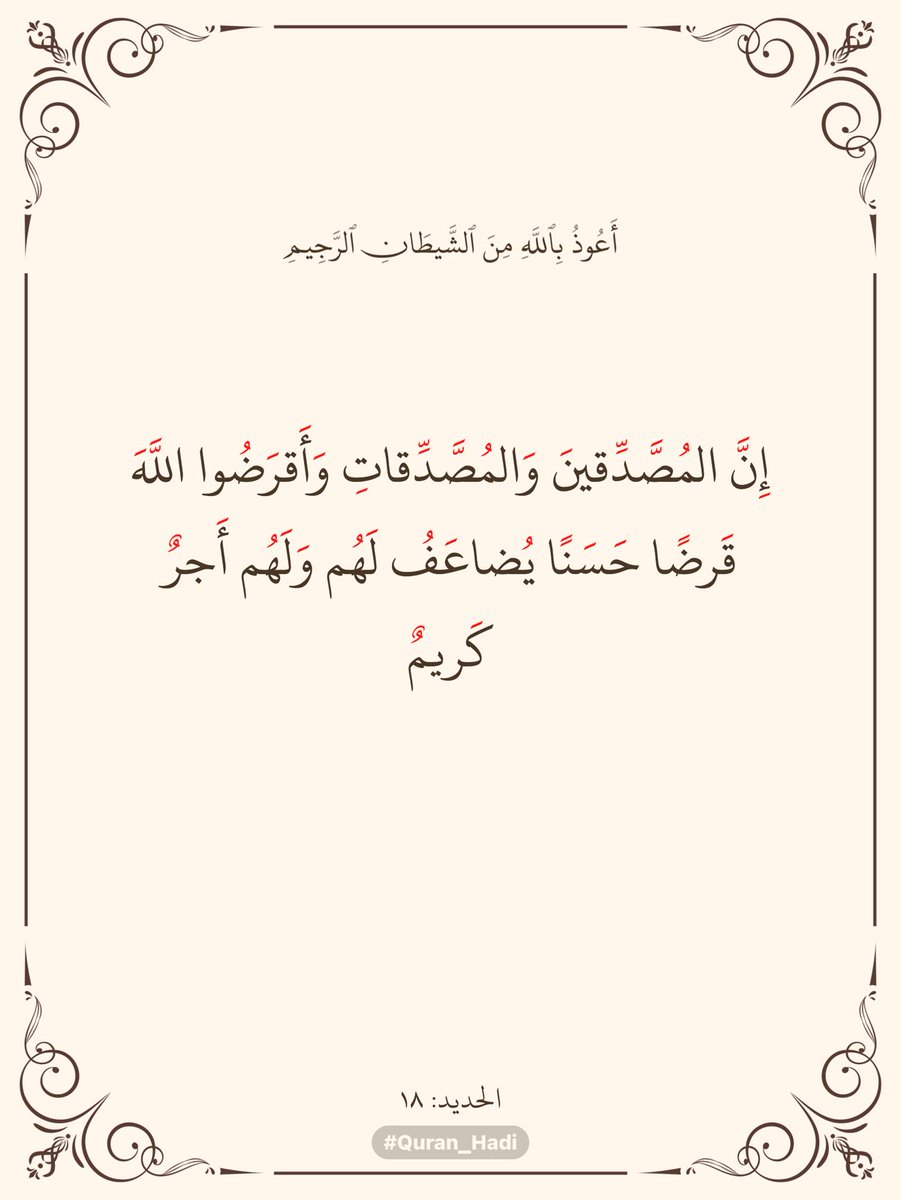 أَعُوذُ بِٱللَّهِ مِنَ ٱلشَّيطَانِ ٱلرَّجِيمِ
إِنَّ المُصَّدِّقينَ وَالمُصَّدِّقاتِ وَأَقرَضُوا اللَّهَ
قَرضًا حَسَنًا يُضاعَفُ لَهُم وَلَهُم أَجرٌ
كَريمٌ
الحديد: ١٨
#Quran_Hadi